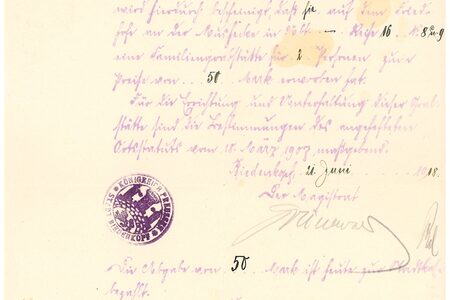 wird hierdurch bescheinigt, daß sie auf dem Fried-
hofe an der in Abt. — Reihe 16 N. 8 u. 9
eine Familiengrabstätte für 2 Personen zum
Preise von 50 Mark erworben hat.
Für die Errichtung und Unterhaltung dieser Grab-
stätte sind die Bestimmungen des angehefteten
Ortsstatuts vom 18. März 1907 maßgebend.
Biedenkopf, 21. Juni 1918.
Der Magistrat
KÖNIGREICH PREUSSEN
STADT BIEDENKOPF
Die Abgabe von 50 Mark ist heute zur Stadtkasse
bezahlt.